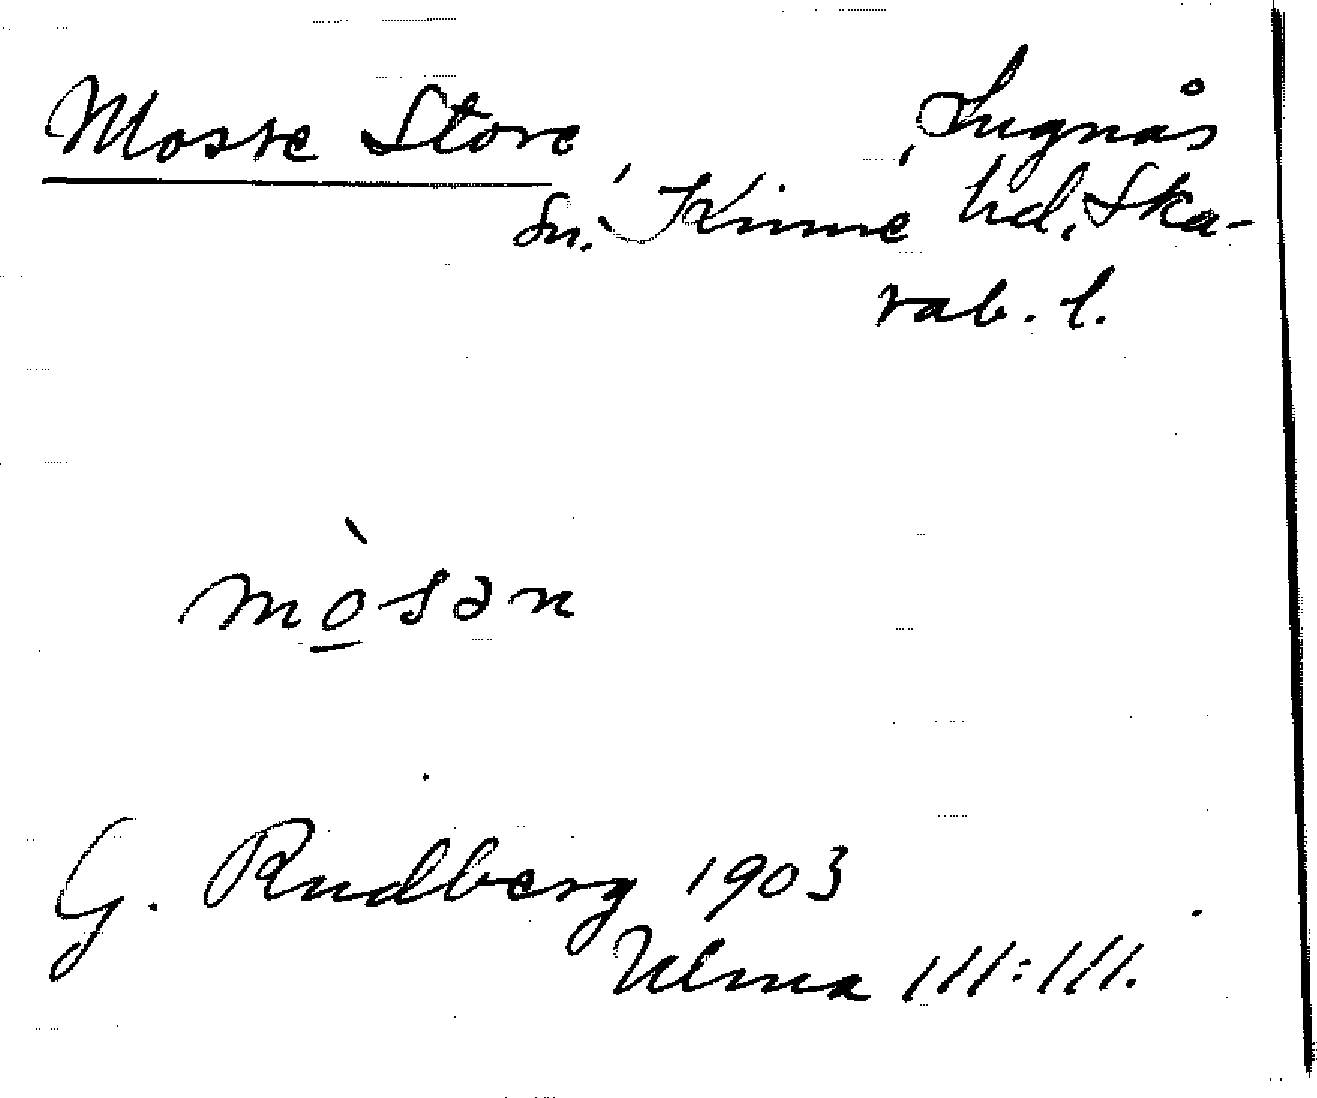 Mosse Store, Lugnås
Sn. Kinne hd. Ska-
rab. l.
mò̲sən
G. Rudberg 1903
Ulma 111:111.